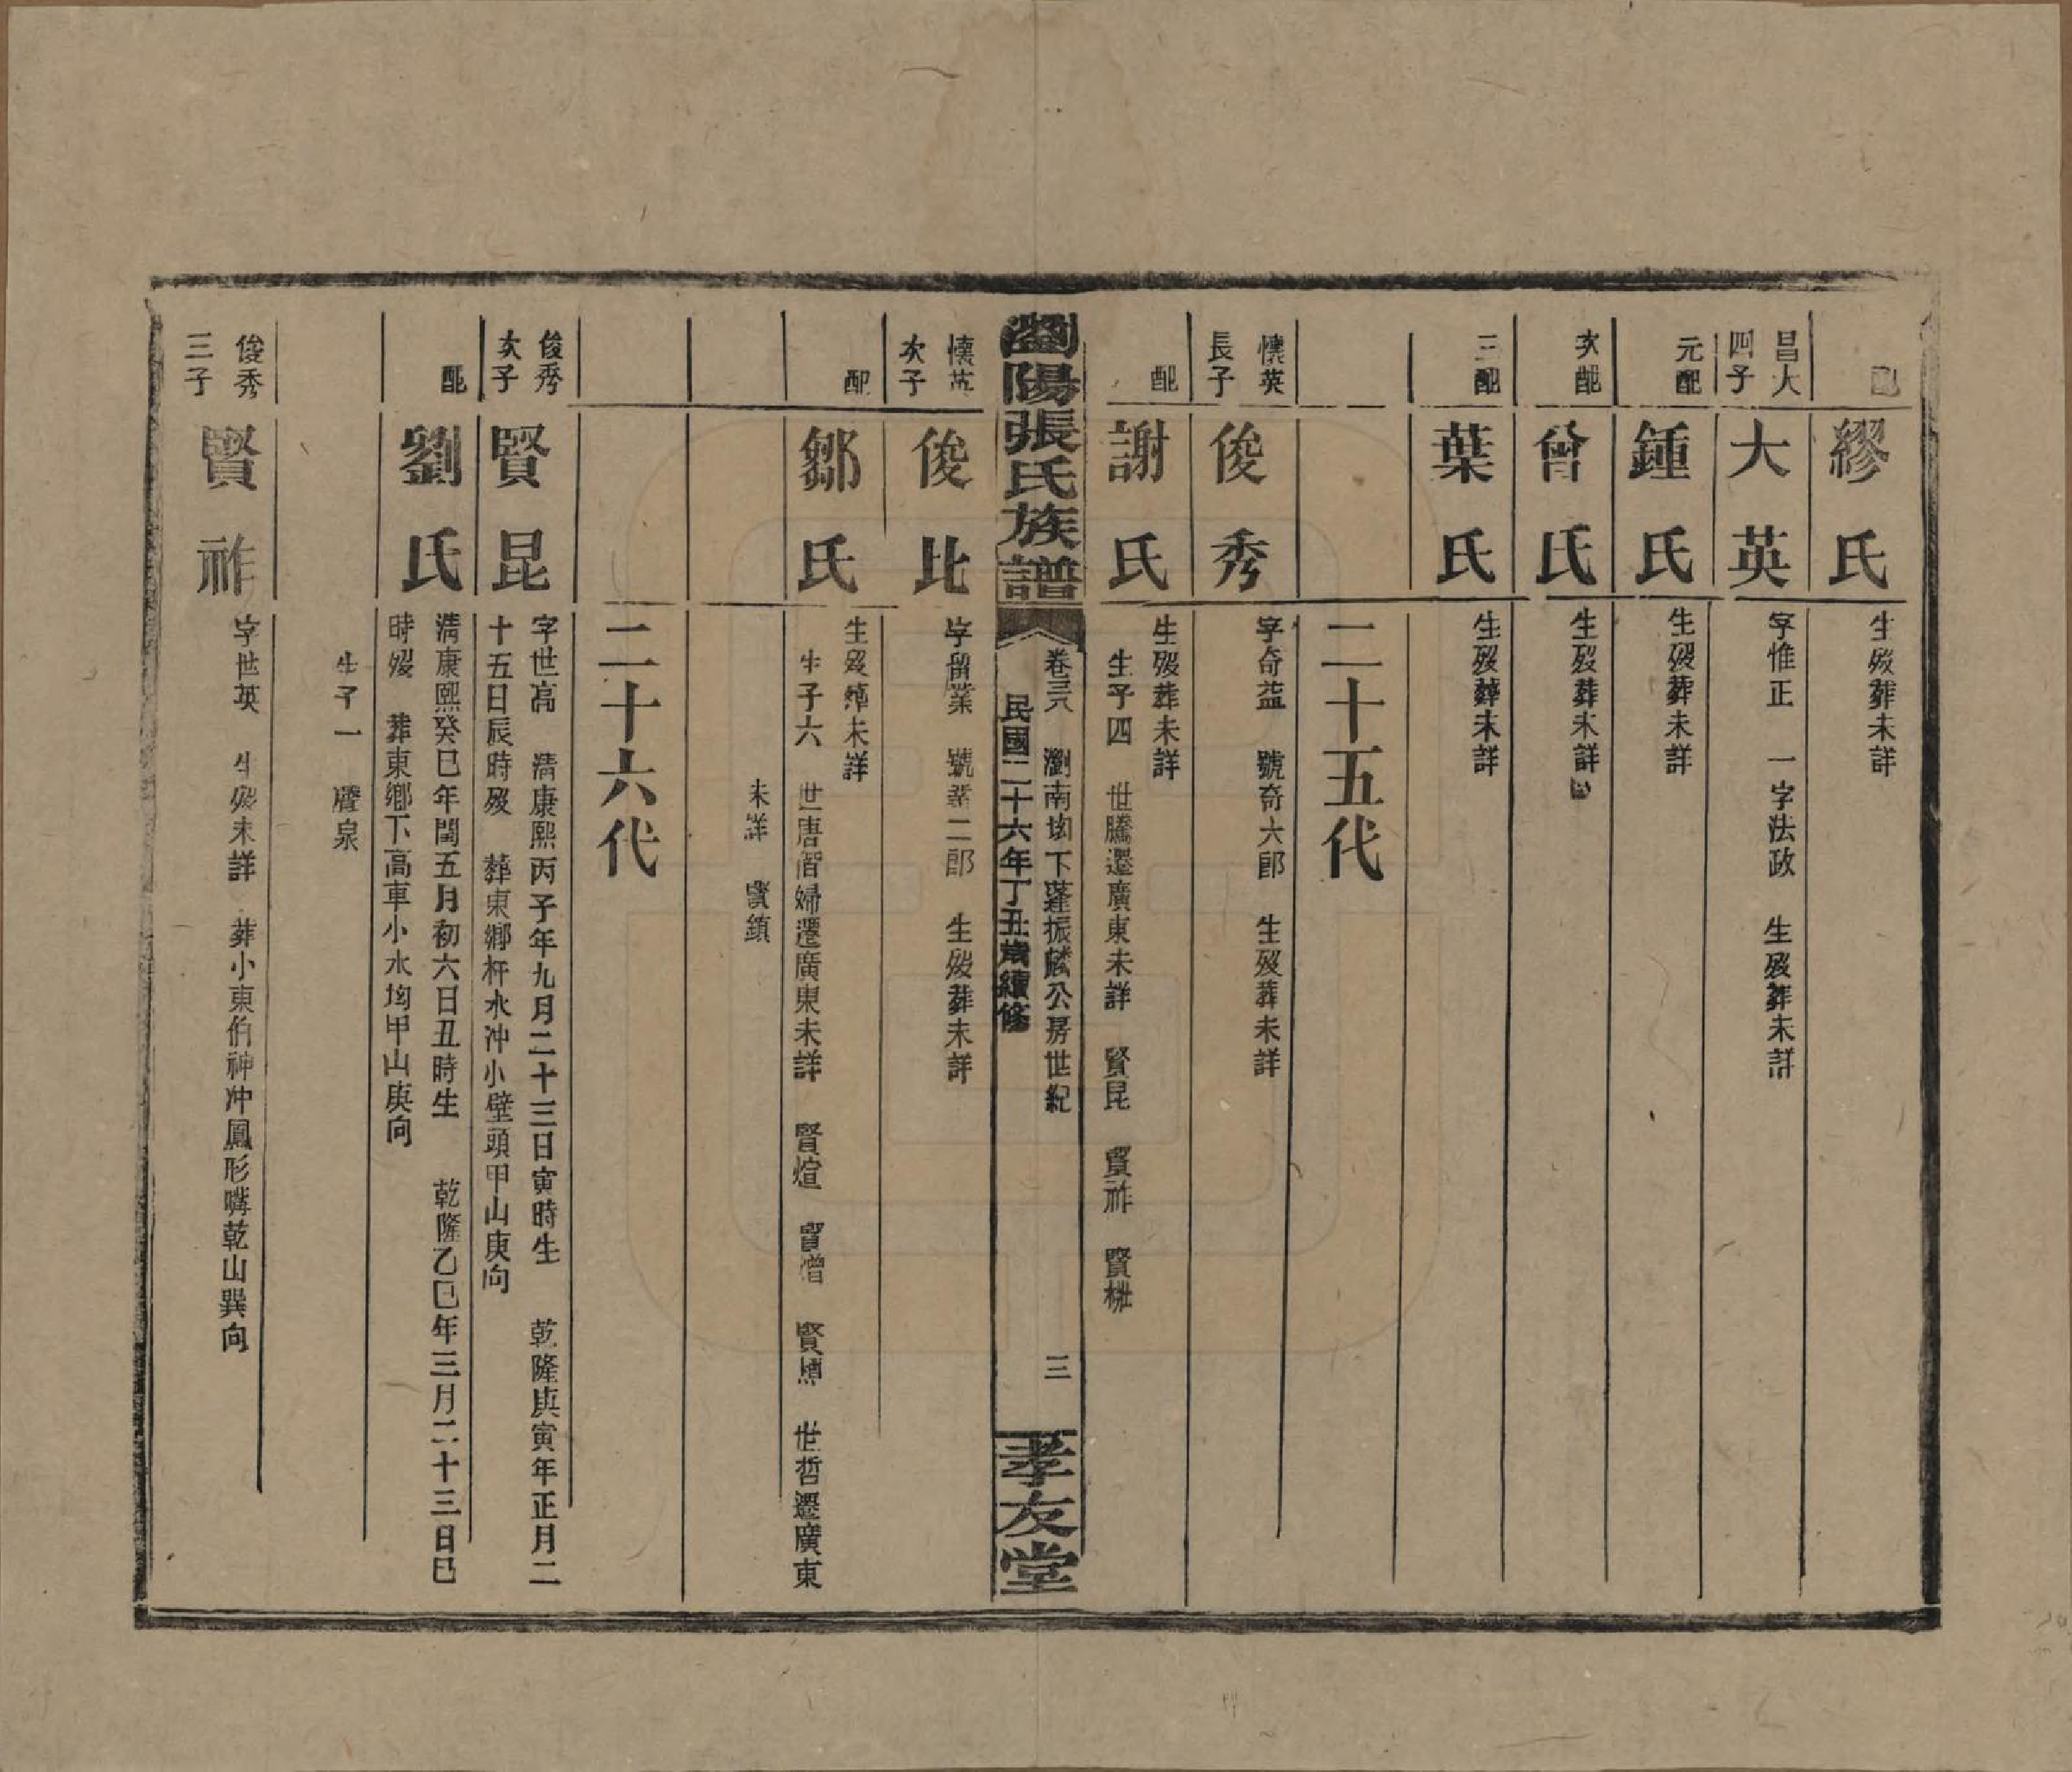 配
繆氏
生歿葬未詳
昌大
四子
大英
字惟正 一字法政 生歿葬未詳
元配
鍾氏
生歿葬未詳
次配
曾氏
生歿葬未詳
三配
葉氏
生歿葬未詳
二十五代
懷英
長子
俊秀
字奇益 號奇六郎 生歿葬未詳
配
謝氏
生歿葬未詳
生子四 世騰遷廣東未詳 賢昆 賢祚 賢
瀏陽張氏族譜
卷三八 瀏南坳下蓬振麟公房世紀 三
民國二十六年丁丑歲續修
孝友堂
懷英
次子
俊比
字留業 號 二郎 生歿葬未詳
配
鄒氏
生歿葬未詳
生子六 世唐偕婦遷廣東未詳 賢煊 賢 賢 世哲遷廣東
未詳 賢鎮
二十六代
俊秀
次子
賢昆
字世高 清康熙丙子年九月二十三日寅時生 乾隆庚寅年正月二
十五日辰時歿 葬東鄉杆水沖小壁頭甲山庚向
配
劉氏
清康熙癸巳年閏五月初六日丑時生 乾隆乙巳年三月二十三日巳
時歿 葬東鄉下高車小水坳甲山庚向
生子一 勝泉
俊秀
三子
賢祚
字世英 生歿未詳 葬小東伯神沖鳳形嘴乾山巽向